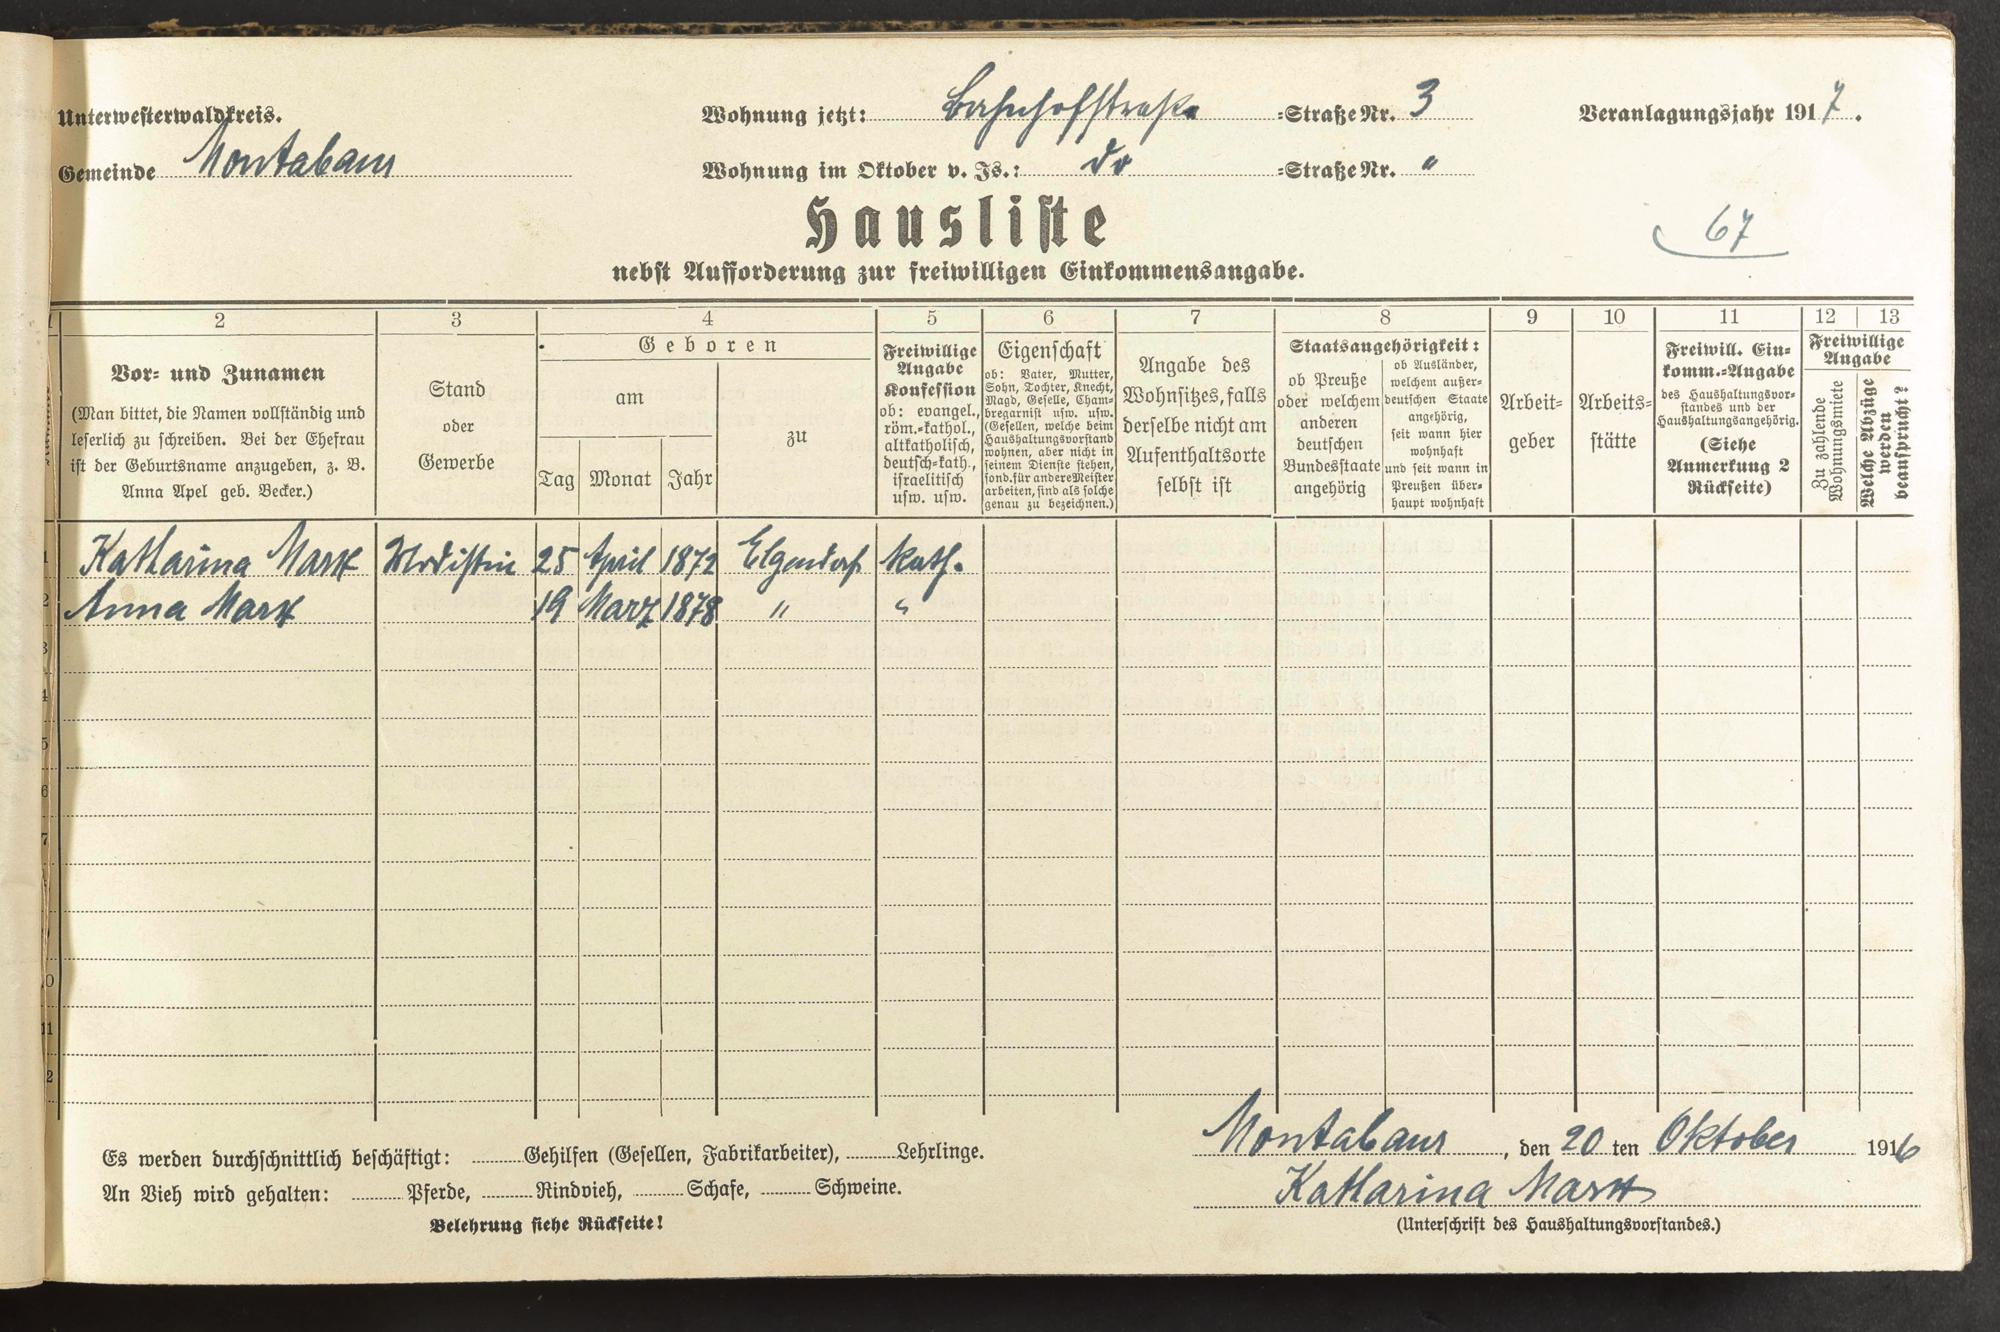 Unterwesterwaldkreis.
Wohnung jetzt: Bahnhofstraße =Straße Nr. 3
Veranlagungsjahr 1917.
Gemeinde Montabaur
Wohnung im Oktober v. Js.: do =Straße Nr. "
Hausliste
67
nebst Aufforderung zur freiwilligen Einkommensangabe.
2 3 4 5 6 7 8 9 10 11 12 13
Vor- und Zunamen
(Man bittet, die Namen vollständig und
leserlich zu schreiben. Bei der Ehefrau
ist der Geburtsname anzugeben, z. B.
Anna Apel geb. Becker.)
Stand
oder
Gewerbe
Geboren
am
zu
Tag Monat Jahr
Freiwillige
Angabe
Konfession
ob: evangel.,
röm.-kathol.,
altkatholisch,
deutsch-kath.,
israelitisch
usw. usw.
Eigenschaft
ob: Vater, Mutter,
Sohn, Tochter, Knecht,
Magd, Geselle, Cham-
bregarnist usw. usw.
(Gesellen, welche beim
Haushaltungsvorstand
wohnen, aber nicht in
seinem Dienste stehen,
sond. für andere Meister
arbeiten, sind als solche
genau zu bezeichnen.)
Angabe des
Wohnsitzes, falls
derselbe nicht am
Aufenthaltsorte
selbst ist
Staatsangehörigkeit:
ob Preuße
oder welchem
anderen
deutschen
Bundesstaate
angehörig
ob Ausländer,
welchem außer-
deutschen Staate
angehörig,
seit wann hier
wohnhaft
und seit wann in
Preußen über-
haupt wohnhaft
Arbeit-
geber
Arbeits-
stätte
Freiwill. Ein-
komm.-Angabe
des Haushaltungsvor-
standes und der
Haushaltungsangehörig.
(Siehe
Anmerkung 2
Rückseite)
Freiwillige
Angabe
Zu zahlende
Wohnungsmiete
Welche Abzüge
werden
beansprucht?
1 Katharina Marx Modistin 25 April 1872 Elgendorf kath.
2 Anna Marx 19 März 1878 " "
3
4
5
6
7
11
Es werden durchschnittlich beschäftigt: Gehilfen (Gesellen, Fabrikarbeiter), Lehrlinge.
An Vieh wird gehalten: Pferde, Rindvieh, Schafe, Schweine.
Belehrung siehe Rückseite!
Montabaur, den 20 ten Oktober 1916
Katharina Marx
(Unterschrift des Haushaltungsvorstandes.)